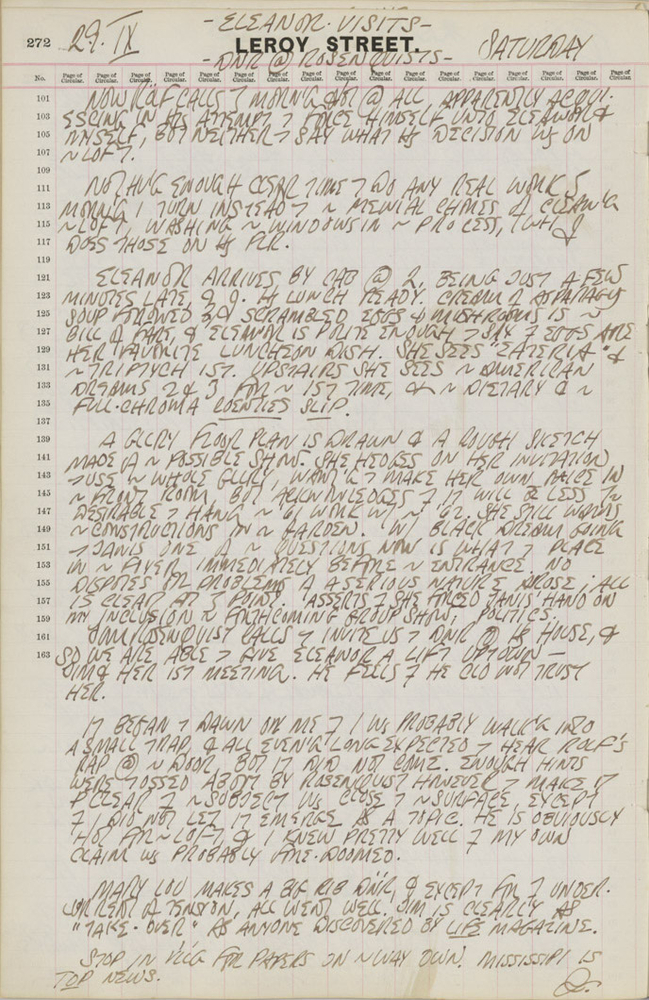 - ELEANOR VISITS -
272 29.IX LEROY STREET. SATURDAY
- DNR @ ROSENQUISTS -
No. Page of Circular. Page of Circular. Page of Circular. Page of Circular. Page of Circular. Page of Circular. Page of Circular. Page of Circular. Page of Circular. Page of Circular. Page of Circular. Page of Circular. Page of Circular. Page of Circular. Page of Circular. Page of Circular. Page of Circular.
101 NOW ROLF CALLS MORN'G NOT @ ALL, APPARENTLY ACQUI-
103 ESCING IN HIS ATTEMPT FORCE HIMSELF UNTO ELEANOR &
105 MYSELF, BUT NEITHER SAY WHAT HIS DECISION IS ON
107 ~ LOFT.
109
111 NOT HV'G ENOUGH CLEAR TIME DO ANY REAL WORK
113 MORN'G I TURN INSTEAD ~ MENIAL CHORES OF CLEAN'G
115 ~ LOFT, WASHING ~ WINDOWS IN ~ PROCESS,
117 DOES THOSE ON HIS FLR.
119
121 ELEANOR ARRIVES BY CAB @ 2, BEING JUST A FEW
123 MINUTES LATE, & LUNCH READY. CREAM OF ASPARAGUS
125 SOUP FOLLOWED BY SCRAMBLED EGGS & MUSHROOMS IS ~
127 BILL OF FARE, & ELEANOR IS POLITE ENOUGH SAY EGGS ARE
129 HER FAVORITE LUNCHEON DISH. SHE SEES "EATERIA" &
131 ~ TRIPTYCH 1ST. UPSTAIRS SHE SEES ~ AMERICAN
133 DREAMS 2 & 3 FOR ~ 1ST TIME, ~ DIETARY & ~
135 FULL-CHROMA COENTIES SLIP.
137
139 A GLLRY FLOOR PLAN IS DRAWN & A ROUGH SKETCH
141 MADE OF ~ POSSIBLE SHOW. SHE HEDGES ON HER INVITATION
143 USE ~ WHOLE GLLRY, WANT'G MAKE HER OWN IN
145 ~ FRONT ROOM, BUT ACKNOWLEDGES IT WILL BE LESS
147 DESIRABLE HANG ~ '61 WORK W/ ~ '62. SHE STILL WANTS
149 ~ CONSTRUCTIONS IN ~ GARDEN. W/ BLACK DREAM GOING
151 JANIS ONE OF ~ QUESTIONS NOW IS WHAT PLACE
153 IN ~ FOYER IMMEDIATELY BEFORE ~ ENTRANCE. NO
155 DISPUTES OR PROBLEMS OF A SERIOUS NATURE AROSE; ALL
157 IS CLEAR AT POINT. ASSERTS SHE FORCED JANIS' HAND ON
159 MY INCLUSION ~ FORTHCOMING GROUP SHOW, POLITICS.
161 JIM ROSENQUIST CALLS INVITE US DNR @ HIS HOUSE, &
163 SO WE ARE ABLE GIVE ELEANOR A LIFT UPTOWN —
JIM & HER 1ST MEETING. HE FEELS HE CLD NOT TRUST
HER.
IT BEGAN DAWN ON ME I WS PROBABLY WALK'G INTO
A SMALL TRAP, & ALL EVEN'G LONG EXPECTED HEAR ROLF'S
RAP @ ~ DOOR, BUT IT DID NOT COME. ENOUGH HINTS
WERE TOSSED ABOUT BY ROSENQUIST HOWEVER MAKE IT
CLEAR ~ SUBJECT WS CLOSE ~ SURFACE, EXCEPT
I DID NOT LET IT EMERGE AS A TOPIC. HE IS OBVIOUSLY
HOT FOR ~ LOFT, & I KNEW PRETTY WELL MY OWN
CLAIM WS PROBABLY FORE-DOOMED.
MARY LOU MAKES A BIG RIB DNR, & EXCEPT FOR UNDER-
CURRENT OF TENSION, ALL WENT WELL. JIM IS CLEARLY AS
"TAKE-OVER" AS ANYONE DISCOVERED BY LIFE MAGAZINE.
STOP IN VLG FOR PAPERS ON ~ WAY DWN. MISSISSIPPI IS
TOP NEWS.